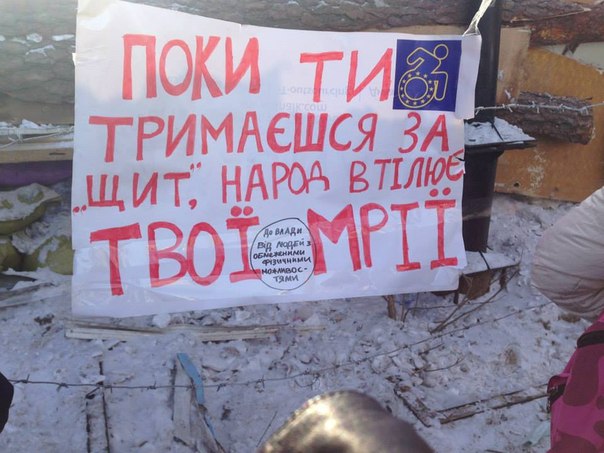 ПОКИ ТИ
ТРИМАЄШСЯ ЗА
„ЩИТ”, НАРОД ВТІЛЮЄ
ТВОЇ МРІЇ
ДО ВЛАДИ
ВІД ЛЮДЕЙ З
ОБМЕЖЕНИМИ
ФІЗИЧНИМИ
МОЖЛИВОС-
ТЯМИ